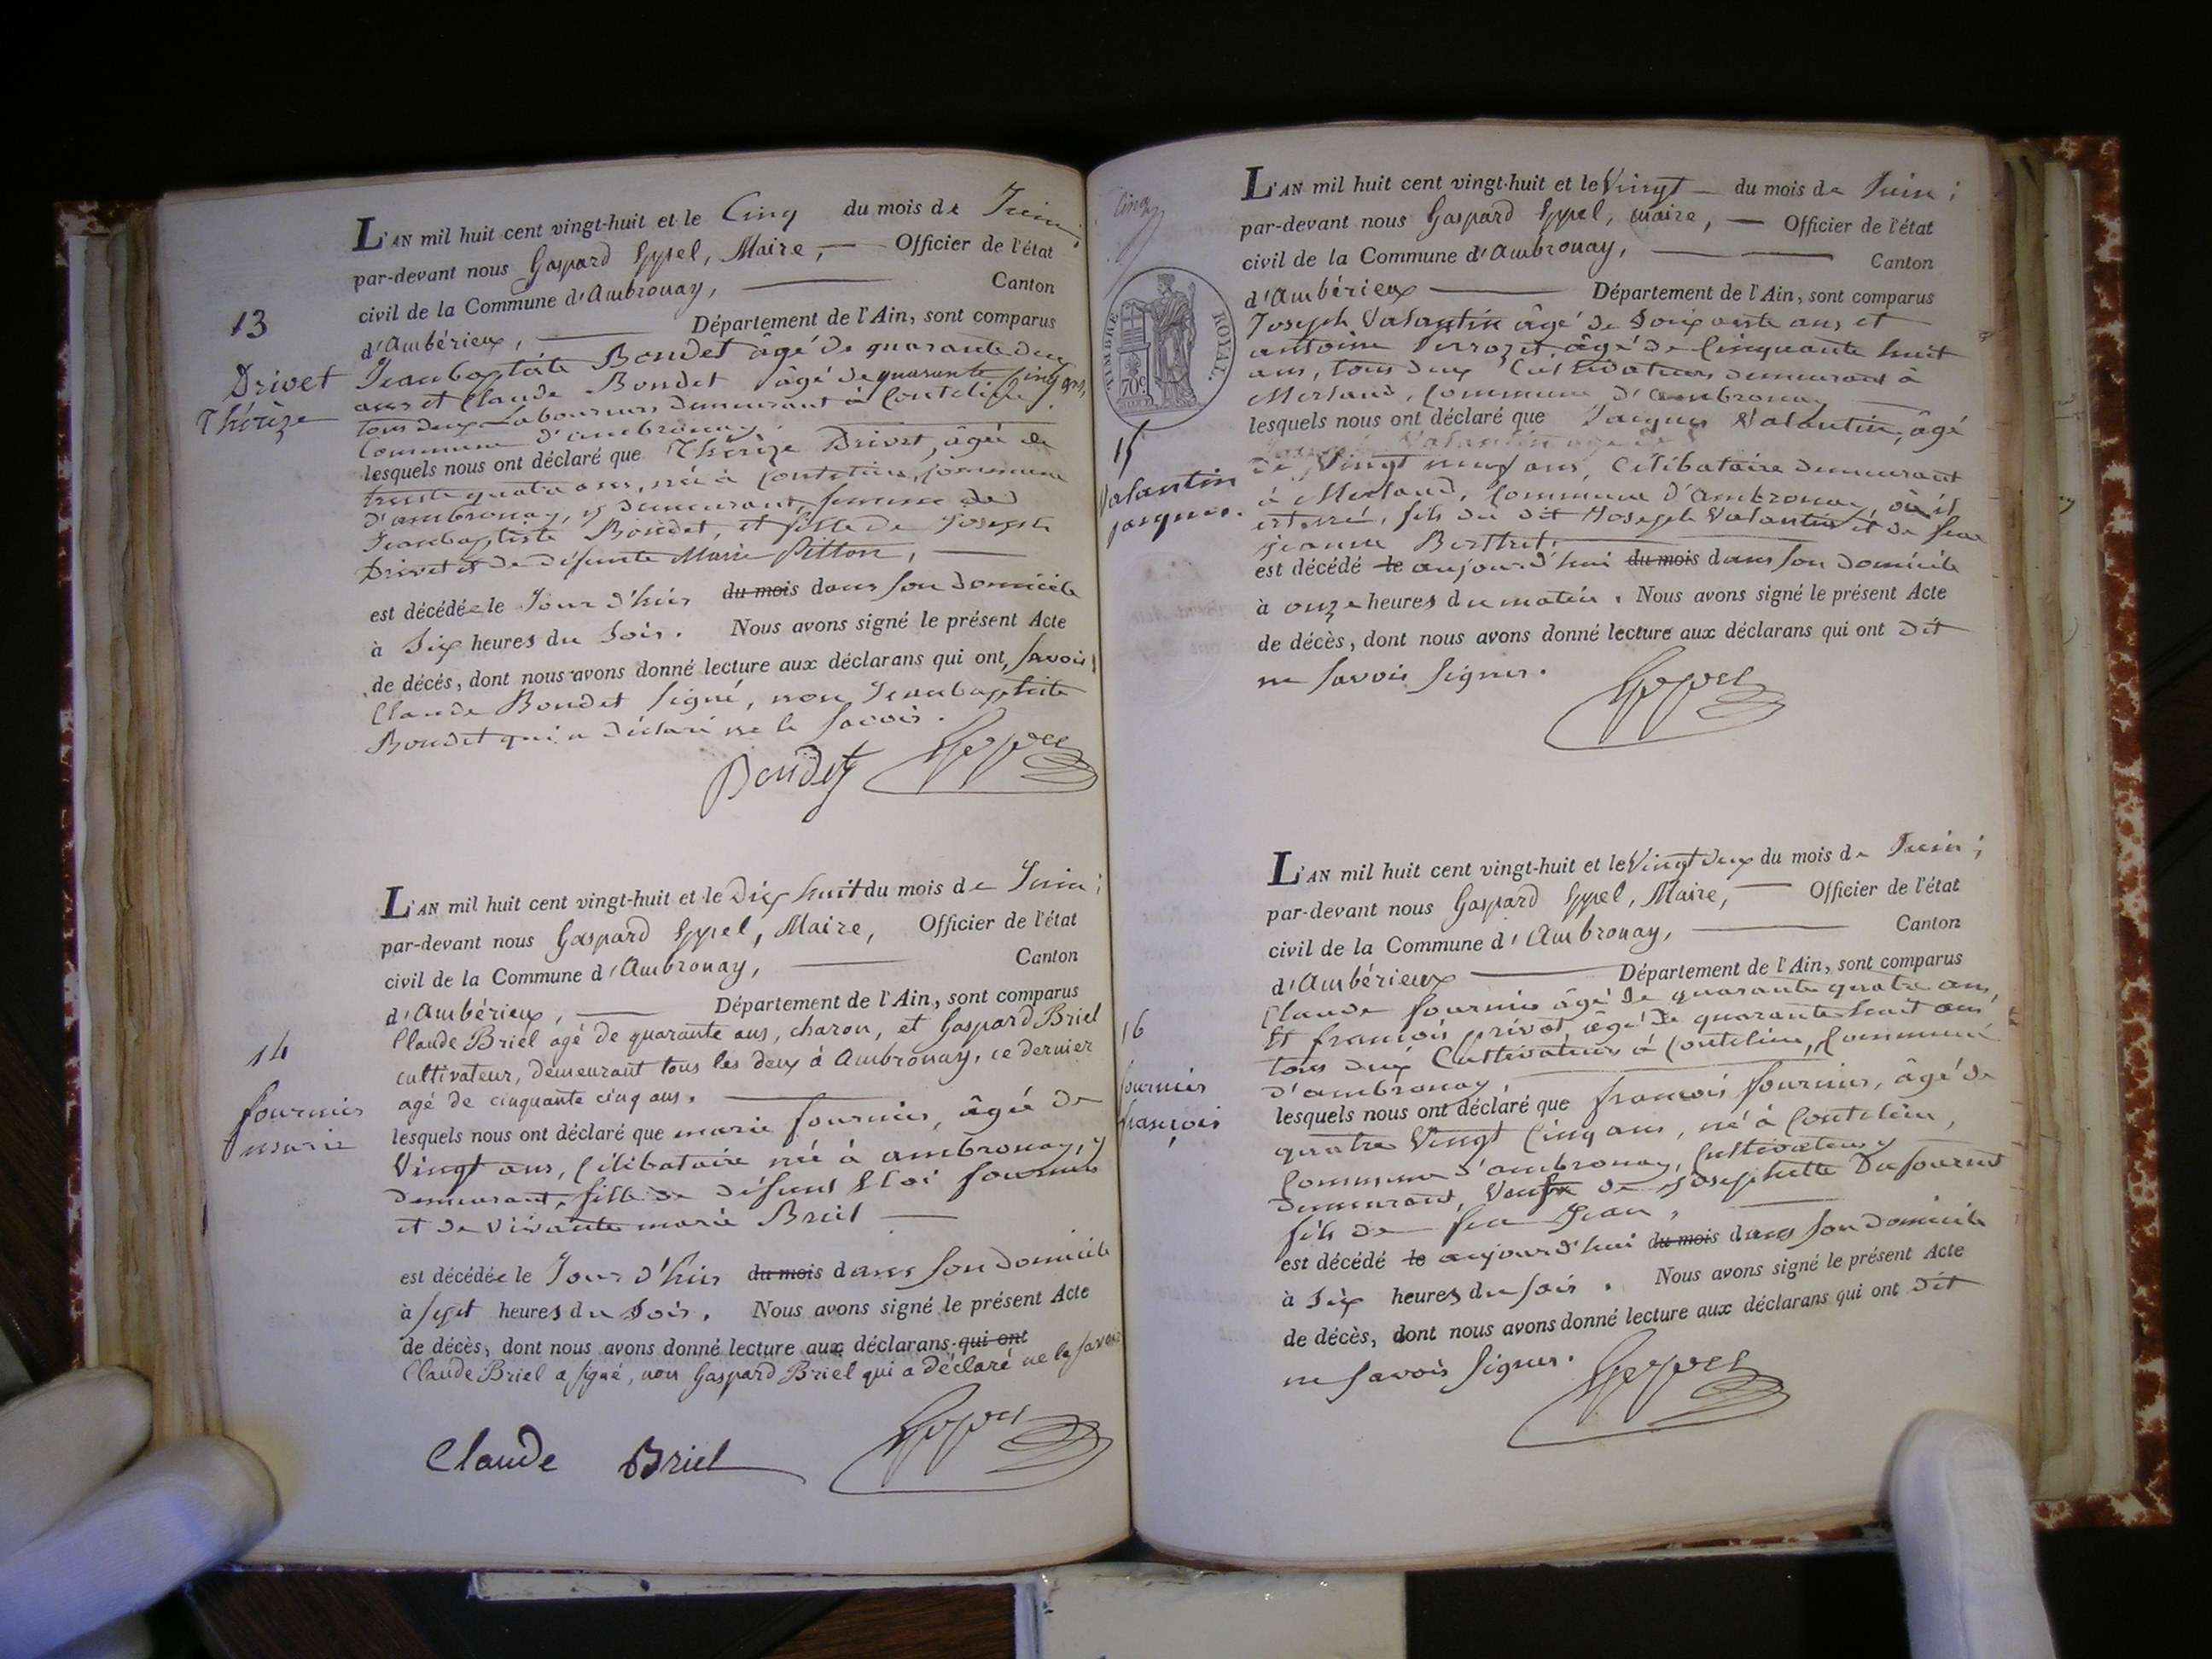 L'AN mil huit cent vingt-huit et le Cinq du mois de Juin;
par-devant nous Gaspard Eppel, Maire, — Officier de l'état
civil de la Commune d'Ambronay, — Canton
d'Ambérieux, — Département de l'Ain, sont comparus
13
Drivet
Thérèze
Jeanbaptiste Bondet âgé de quarante deux
ans et Claude Bondet âgé de quarante cinq ans,
tous deux Laboureurs demeurant à Coutelieu,
Commune d'ambronay. —
lesquels nous ont déclaré que Thérèze Drivet, âgée de
trente quatre ans, née à Coutelieu, commune
d'ambronay, y demeurant, femme de
Jeanbaptiste Bondet, et fille de Joseph
Drivet et de défunte Marie Pitton, —
est décédée le Jour d'hier du mois dans son domicile
à Six heures du soir. Nous avons signé le présent Acte
de décès, dont nous avons donné lecture aux déclarans qui ont, savoir
Claude Bondet signé, non Jeanbaptiste
Bondet qui a déclaré ne le savoir.
Bondet Eppel
L'AN mil huit cent vingt-huit et le Dix huit du mois de Juin;
par-devant nous Gaspard Eppel, Maire, Officier de l'état
civil de la Commune d'Ambronay, — Canton
d'Ambérieux, — Département de l'Ain, sont comparus
14
fournier
marie
Claude Briel agé de quarante ans, charon, et Gaspard Briel
cultivateur, demeurant tous les deux à Ambronay, ce dernier
agé de cinquante cinq ans. —
lesquels nous ont déclaré que marie fournier, âgée de
Vingt ans, Célibataire née à ambronay, y
demeurant, fille de défunt Eloi fournier
et de vivante marie Briel —
est décédée le Jour d'hier du mois dans son domicile
à sept heures du Soir. Nous avons signé le présent Acte
de décès, dont nous avons donné lecture aux déclarans qui ont
Claude Briel a signé, non Gaspard Briel qui a déclaré ne le savoir
Claude Briel Eppel
Cinq
TIMBRE ROYAL.
70c.
L'AN mil huit cent vingt-huit et le Vingt — du mois de Juin;
par-devant nous Gaspard Eppel, maire, — Officier de l'état
civil de la Commune d'Ambronay, — Canton
d'Ambérieux — Département de l'Ain, sont comparus
15
Valantin
jacques.
Joseph Valantin âgé de Soixante ans et
antoine Perrozet, âgé de Cinquante huit
ans, tous deux Cultivateurs demeurant à
Merland, Commune d'ambronay —
lesquels nous ont déclaré que Jacques Valantin, âgé
de Vingt neuf ans, Célibataire demeurant
à Merland, Commune d'ambronay, où il
est né, fils du dit Joseph Valantin et de feue
jeanne Berthet. —
est décédé le aujourd'hui du mois dans son domicile
à onze heures du matin. Nous avons signé le présent Acte
de décès, dont nous avons donné lecture aux déclarans qui ont dit
ne savoir signer.
Eppel
L'AN mil huit cent vingt-huit et le Vingt deux du mois de Juin;
par-devant nous Gaspard Eppel, Maire, — Officier de l'état
civil de la Commune d'Ambronay, — Canton
d'Ambérieux — Département de l'Ain, sont comparus
16
fournier
françois
Claude fournier âgé de quarante quatre ans,
Et françois privot, âgé de quarante huit ans
tous deux Cultivateurs à Coutelieu, Commune
d'ambronay —
lesquels nous ont déclaré que françois fournier, âgé de
quatre Vingt Cinq ans, né à Coutelieu,
Commune d'ambronay, Cultivateur y
demeurant, Veuf de Josephette Dufournet
fils de feu Jean, —
est décédé le aujourd'hui du mois dans son domicile
à Six heures du soir. Nous avons signé le présent Acte
de décès, dont nous avons donné lecture aux déclarans qui ont dit
ne savoir signer.
Eppel